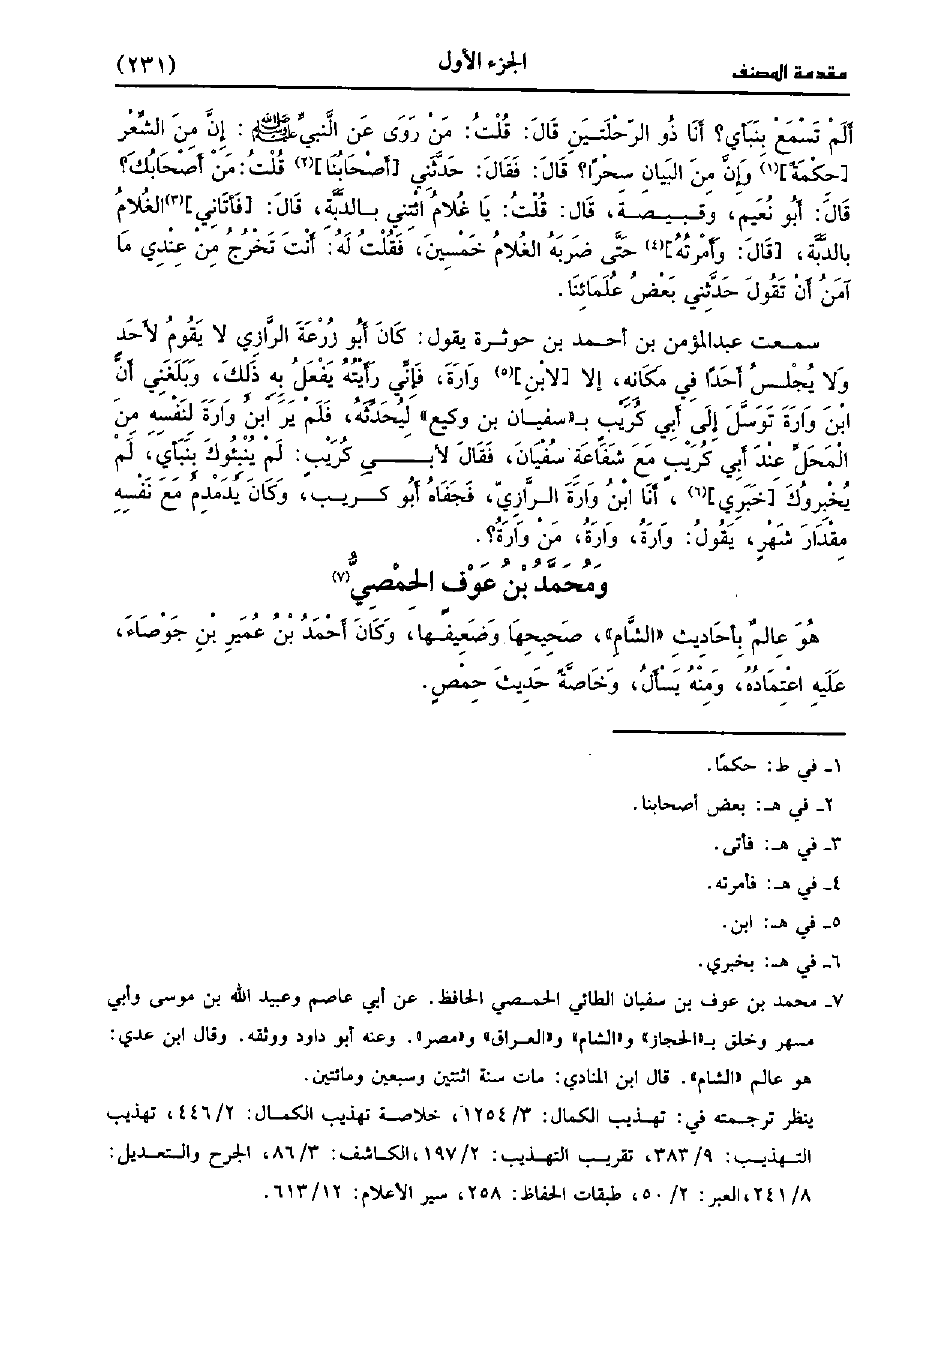 مقدمة المصنف الجزء الأول (٢٣١)
أَلَمْ تَسْمَعْ بِنَبَأي؟ أَنَا ذُو الرِّحْلَتَيَنِ قَالَ: قُلْتُ: مَنْ رَوَى عَن النَّبيِّ ﷺ : إنَّ مِنَ الشِّعْر
[حكْمَةً]^(١) وَإنَّ منَ البَيَان سحْرًا؟ قَالَ: فَقَالَ: حَدَّثَني [أصْحَابُنَا]^(٢) قُلْتُ: مَنْ أصْحَابُكَ؟
قَالَ: أبُو نُعَيم، وقَبِيصة، قَال: قُلْتُ: يَا غلامُ ائْتني بالدِّبَّة، قَالَ: [فَأتَاني]^(٣) الغُلامُ
بالدِّبَّة، [قَالَ: وَأمَرْتُهُ]^(٤) حَتَّى ضَرَبَهُ الغُلامُ خَمْسينَ، فَقُلْتُ لَهُ: أنْتَ تَخْرُجُ منْ عنْدي مَا
آمَنُ أنْ تَقُولَ حَدَّثَني بَعْضُ عُلَمَائنَا.
سمعت عبدالمؤمن بن أحمد بن حوثرة يقول: كَانَ أَبُو زُرْعَةَ الرَّازي لا يَقُومُ لأحَد
وَلا يُجْلسُ أحَدًا في مَكَانه، إلا [لابن]^(٥) وَارَةَ، فَإنِّي رَأيْتُهُ يَفْعَلُ به ذَلكَ، وَبَلَغَني أنَّ
ابْنَ وَارَةَ تَوَسَّلَ إلَى أبي كُرَيْب بـ«سفيان بن وكيع» ليُحَدِّثَهُ، فَلَم يَرَ ابنُ وَارَةَ لنَفْسه منَ
الْمَحَلِّ عنْدَ أبي كُرَيْب مَعَ شَفَاعَة سُفْيَانَ، فَقَالَ لأبي كُرَيْب: لَمْ يُنْبئُوكَ بنَبَأي، لَمْ
يُخْبروكَ [خَبَري]^(٦) ، أنَا ابْنُ وَارَةَ الرَّازيّ، فَجَفَاهُ أبُو كريب، وَكَانَ يُدَمْدمُ مَعَ نَفْسه
مقْدَارَ شَهْر، يَقُولُ: وَارَةُ، وَارَةُ، مَنْ وَارَةُ؟.
وَمُحَمَّدُ بْنُ عَوْف الحمْصيُّ^(٧)
هُوَ عَالمٌ بأحَاديث «الشَّام»، صَحيحهَا وَضَعيفها، وَكَانَ أحْمَدُ بْنُ عُمَير بْن جَوْصَاءَ،
عَلَيه اعْتمَادُهُ، وَمنْهُ يَسْألُ، وَخَاصَّةً حَديثَ حمْص.
١ـ في ط: حكمًا.
٢ـ في هـ: بعض أصحابنا.
٣ـ في هـ: فأتى.
٤ـ في هـ: فأمرته.
٥ـ في هـ: ابن.
٦ـ في هـ: بخبري.
٧ـ محمد بن عوف بن سفيان الطائي الحمصي الحافظ. عن أبي عاصم وعبيد الله بن موسى وأبي
مسهر وخلق بـ«الحجاز» و«الشام» و«العراق» و«مصر». وعنه أبو داود ووثقه. وقال ابن عدي:
هو عالم «الشام». قال ابن المنادي: مات سنة اثنتين وسبعين ومائتين.
ينظر ترجمته في: تهذيب الكمال: ١٢٥٤/٣، خلاصة تهذيب الكمال: ٤٤٦/٢، تهذيب
التهذيب: ٣٨٣/٩، تقريب التهذيب: ١٩٧/٢، الكاشف: ٨٦/٣، الجرح والتعديل:
٢٤١/٨، العبر: ٥٠/٢، طبقات الحفاظ: ٢٥٨، سير الأعلام: ٦١٣/١٢.